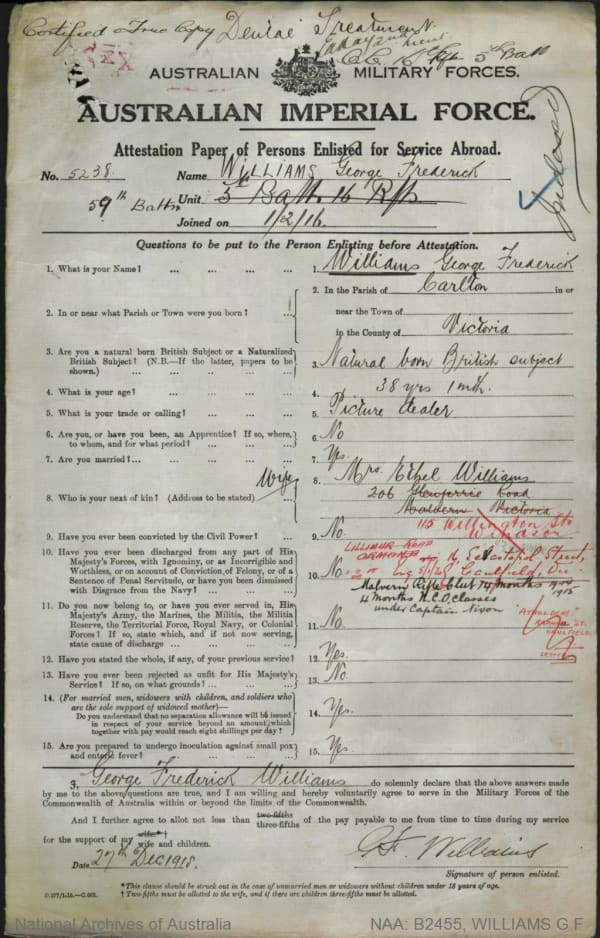 Certified True Copy Dental Treatment
5th Batt
AUSTRALIAN MILITARY FORCES.
AUSTRALIAN IMPERIAL FORCE.
Attestation Paper of Persons Enlisted for Service Abroad.
No. 5238. Name WILLIAMS George Frederick
59th Battn Unit 5 Battn 16 Rfts
Joined on 1/2/16.
Questions to be put to the Person Enlisting before Attestation.
1. What is your Name? ... ... ... ... 1. Williams George Frederick
2. In or near what Parish or Town were you born? ... 2. In the Parish of Carlton in or
near the Town of
in the County of Victoria
3. Are you a natural born British Subject or a Naturalized British Subject? (N.B.—If the latter, papers to be shown.) ... ... ... ... ... 3. Natural born British subject
4. What is your age? ... ... ... ... 4. 38 yrs 1 mth.
5. What is your trade or calling? ... ... ... 5. Picture Dealer
6. Are you, or have you been, an Apprentice? If so, where, to whom, and for what period? ... ... ... 6. No
7. Are you married? ... ... ... ... ... 7. Yes.
8. Who is your next of kin? (Address to be stated) ... Wife 8. Mrs. Ethel Williams
206 Glenferrie Road
Malvern Victoria
115 Willington St.
Windsor
9. Have you ever been convicted by the Civil Power? ... 9. No.
LILLIMUR ROAD
ORMOND
Street,
Caulfield, Vic
10. Have you ever been discharged from any part of His Majesty's Forces, with Ignominy, or as Incorrigible and Worthless, or on account of Conviction of Felony, or of a Sentence of Penal Servitude, or have you been dismissed with Disgrace from the Navy? ... ... ... 10.
Malvern Rifle Club 14 months 1914 1915
4 Months N.C.O. Classes
under Captain Nixon
11. Do you now belong to, or have you ever served in, His Majesty's Army, the Marines, the Militia, the Militia Reserve, the Territorial Force, Royal Navy, or Colonial Forces? If so, state which, and if not now serving, state cause of discharge ... ... ... ... 11. No.
ST.
CAULFIELD.
12. Have you stated the whole, if any, of your previous service? 12. Yes.
13. Have you ever been rejected as unfit for His Majesty's Service? If so, on what grounds? ... ... ... 13. No.
14. (For married men, widowers with children, and soldiers who are the sole support of widowed mother)—
Do you understand that no separation allowance will be issued in respect of your service beyond an amount which together with pay would reach eight shillings per day? 14. Yes.
15. Are you prepared to undergo inoculation against small pox and enteric fever? ... ... ... ... 15. Yes.
I, George Frederick Williams do solemnly declare that the above answers made
by me to the above questions are true, and I am willing and hereby voluntarily agree to serve in the Military Forces of the
Commonwealth of Australia within or beyond the limits of the Commonwealth.
And I further agree to allot not less than two-fifths three-fifths of the pay payable to me from time to time during my service
for the support of my wife* wife and children.
Date 27th Dec 1915. G F. Williams
Signature of person enlisted.
* This clause should be struck out in the case of unmarried men or widowers without children under 18 years of age.
† Two-fifths must be allotted to the wife, and if there are children three-fifths must be allotted.
National Archives of Australia NAA: B2455, WILLIAMS G F